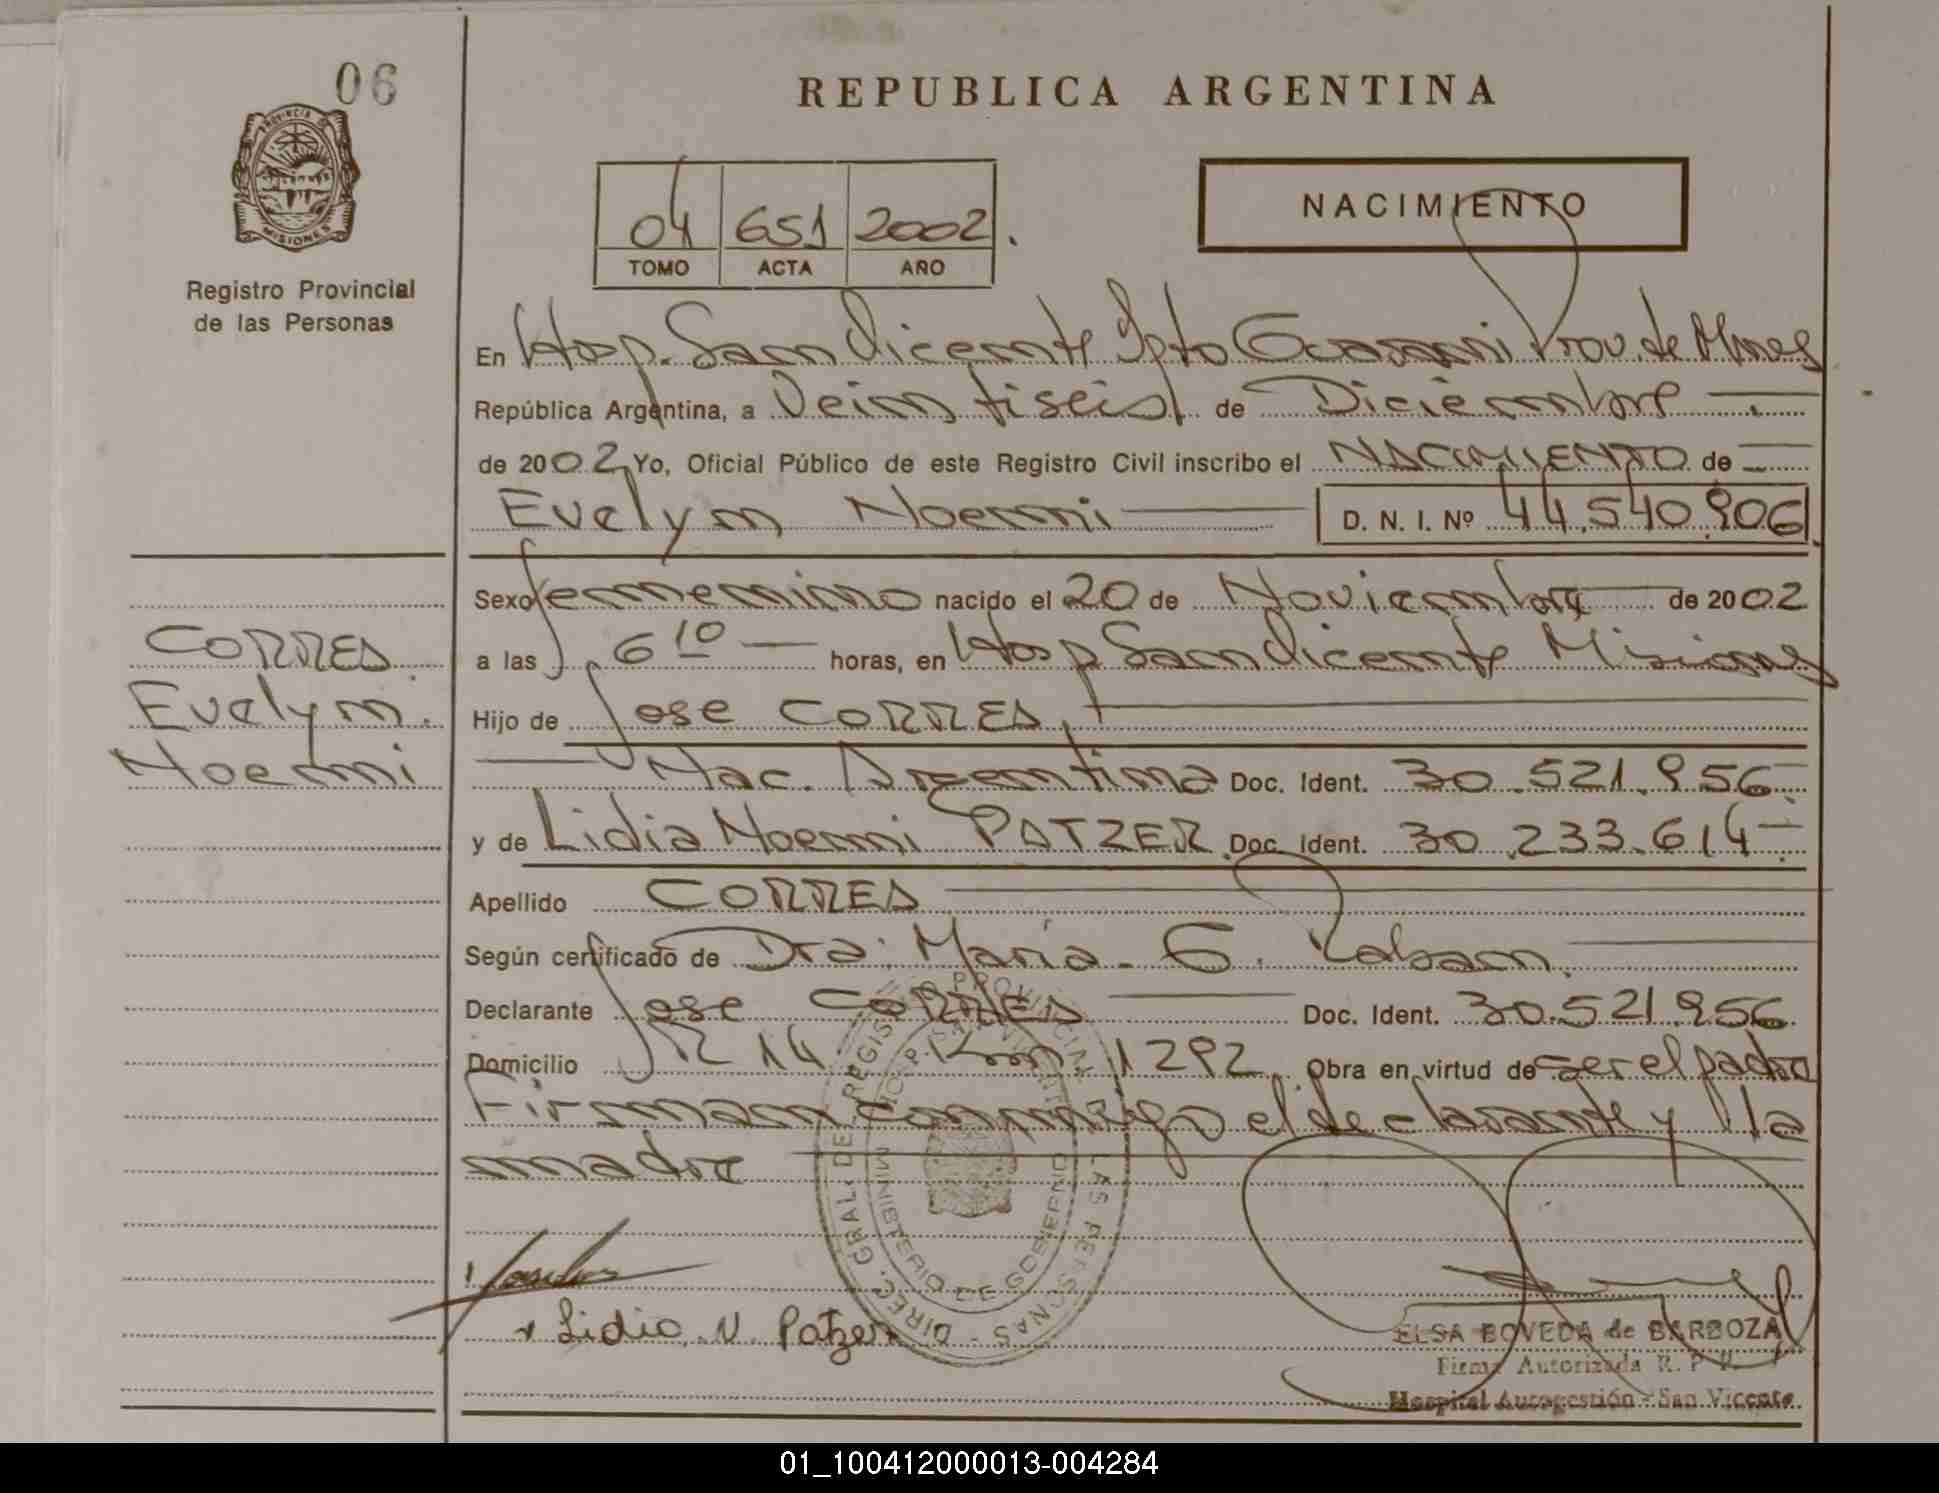 06
REPUBLICA ARGENTINA
PROVINCIA DE MISIONES
Registro Provincial
de las Personas
04 651 2002.
TOMO ACTA AÑO
NACIMIENTO
En Hosp. San Vicente Dpto Guaraní Prov. de Mnes
República Argentina, a Veintiseis de Diciembre
de 2002 Yo, Oficial Público de este Registro Civil inscribo el NACIMIENTO de
Evelyn Noemi D. N. I. Nº 44.540.906
Sexo femenino nacido el 20 de Noviembre de 2002
a las 6 10 horas, en Hosp San Vicente Misiones
Hijo de Jose CORRES
Nac. Argentina Doc. Ident. 30.521.956
y de Lidia Noemi PATZER Doc. Ident. 30.233.614
Apellido CORRES
Según certificado de Dra. Maria G.
Declarante Jose CORRES Doc. Ident. 30.521.956
Domicilio R 14 Km 1292 Obra en virtud de ser el padre
Firman conmigo el declarante y la
madre
CORRES
Evelyn
Noemi
DIREC. GRAL. DE REGISTRO PROVINCIAL DE LAS PERSONAS
HOSP. SAN VICENTE
MINISTERIO DE GOBIERNO
Lidia N. Patzer
ELSA BOVEDA de BARBOZA
Firma Autorizada R. P. P.
Hospital Autogestión - San Vicente
01_100412000013-004284